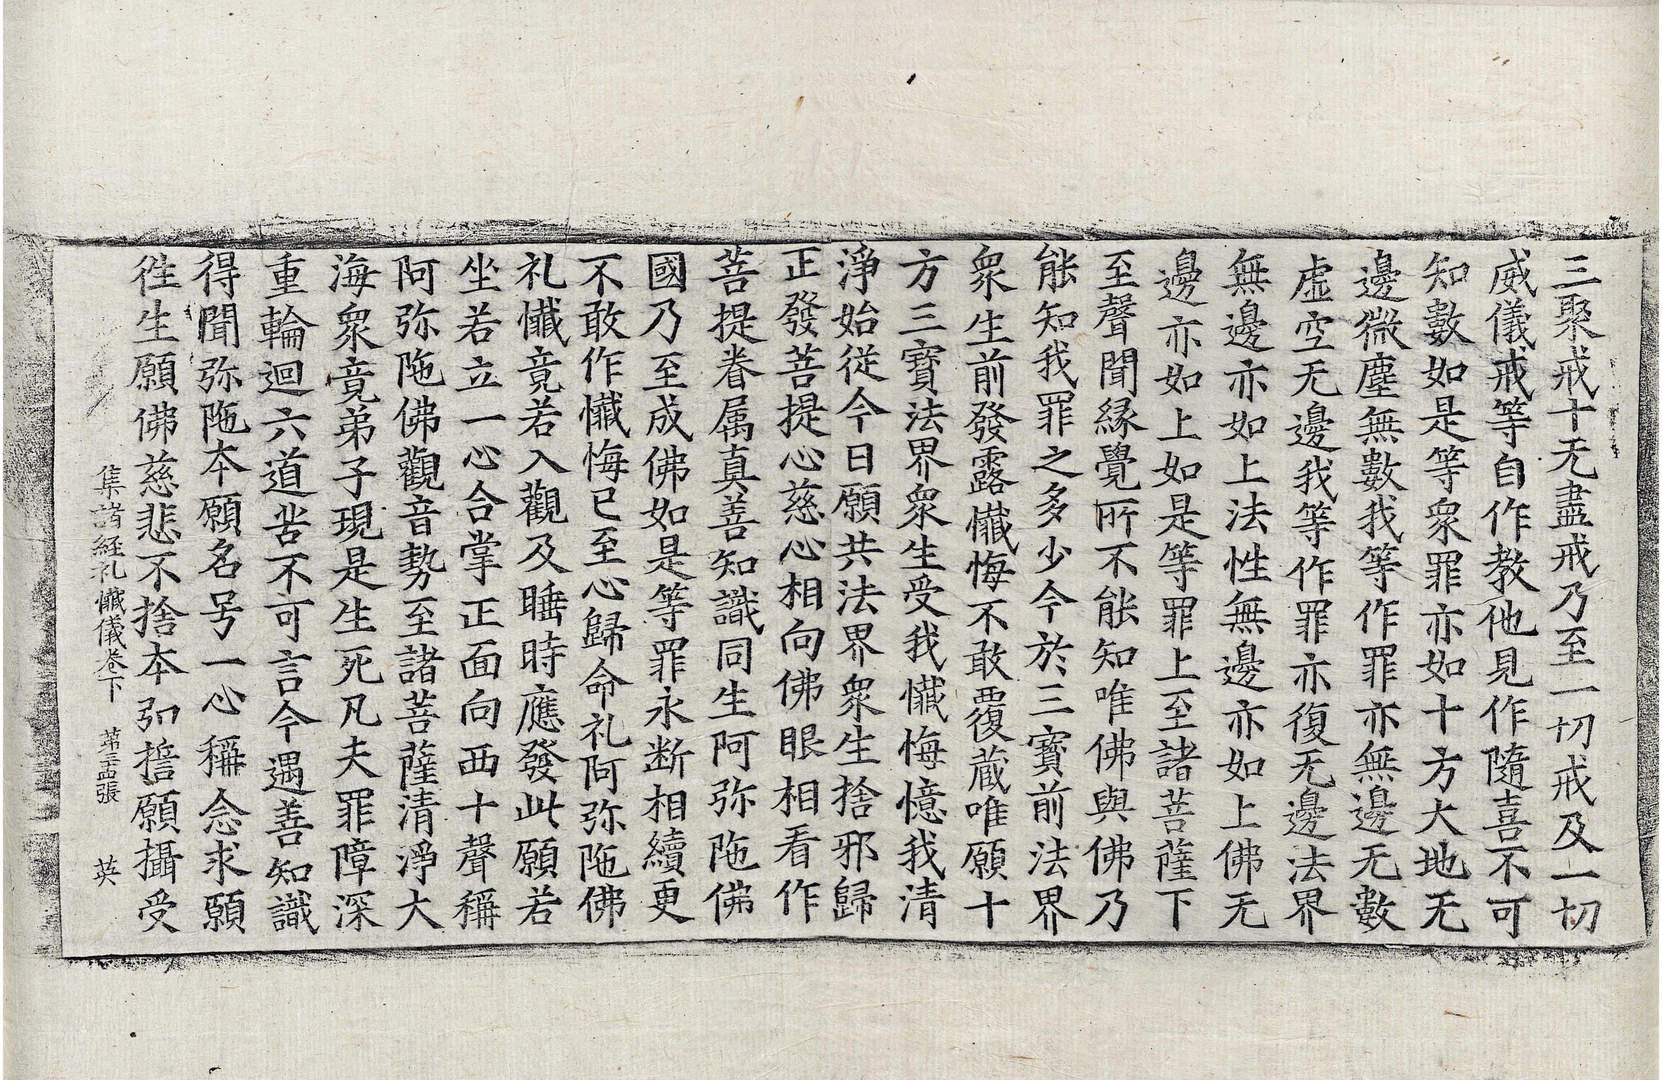 三聚戒十无盡戒乃至一切戒及一切
威儀戒等自作教他見作隨喜不可
知數如是等衆罪亦如十方大地无
邊微塵無數我等作罪亦無邊无數
虛空无邊我等作罪亦復无邊法界
無邊亦如上法性無邊亦如上佛无
邊亦如上如是等罪上至諸菩薩下
至聲聞緣覺所不能知唯佛與佛乃
能知我罪之多少今於三寳前法界
衆生前發露懺悔不敢覆藏唯願十
方三寳法界衆生受我懺悔憶我清
淨始從今日願共法界衆生捨邪歸
正發菩提心慈心相向佛眼相看作
菩提眷属真善知識同生阿弥陁佛
國乃至成佛如是等罪永断相續更
不敢作懺悔已至心歸命礼阿弥陁佛
礼懺竟若入觀及睡時應發此願若
坐若立一心合掌正面向西十聲稱
阿弥陁佛觀音勢至諸菩薩清淨大
海衆竟弟子現是生死凡夫罪障深
重輪迴六道苦不可言今遇善知識
得聞弥陁本願名号一心稱念求願
往生願佛慈悲不捨本弘誓願攝受
集諸経礼懺儀卷下 第三十四張 英